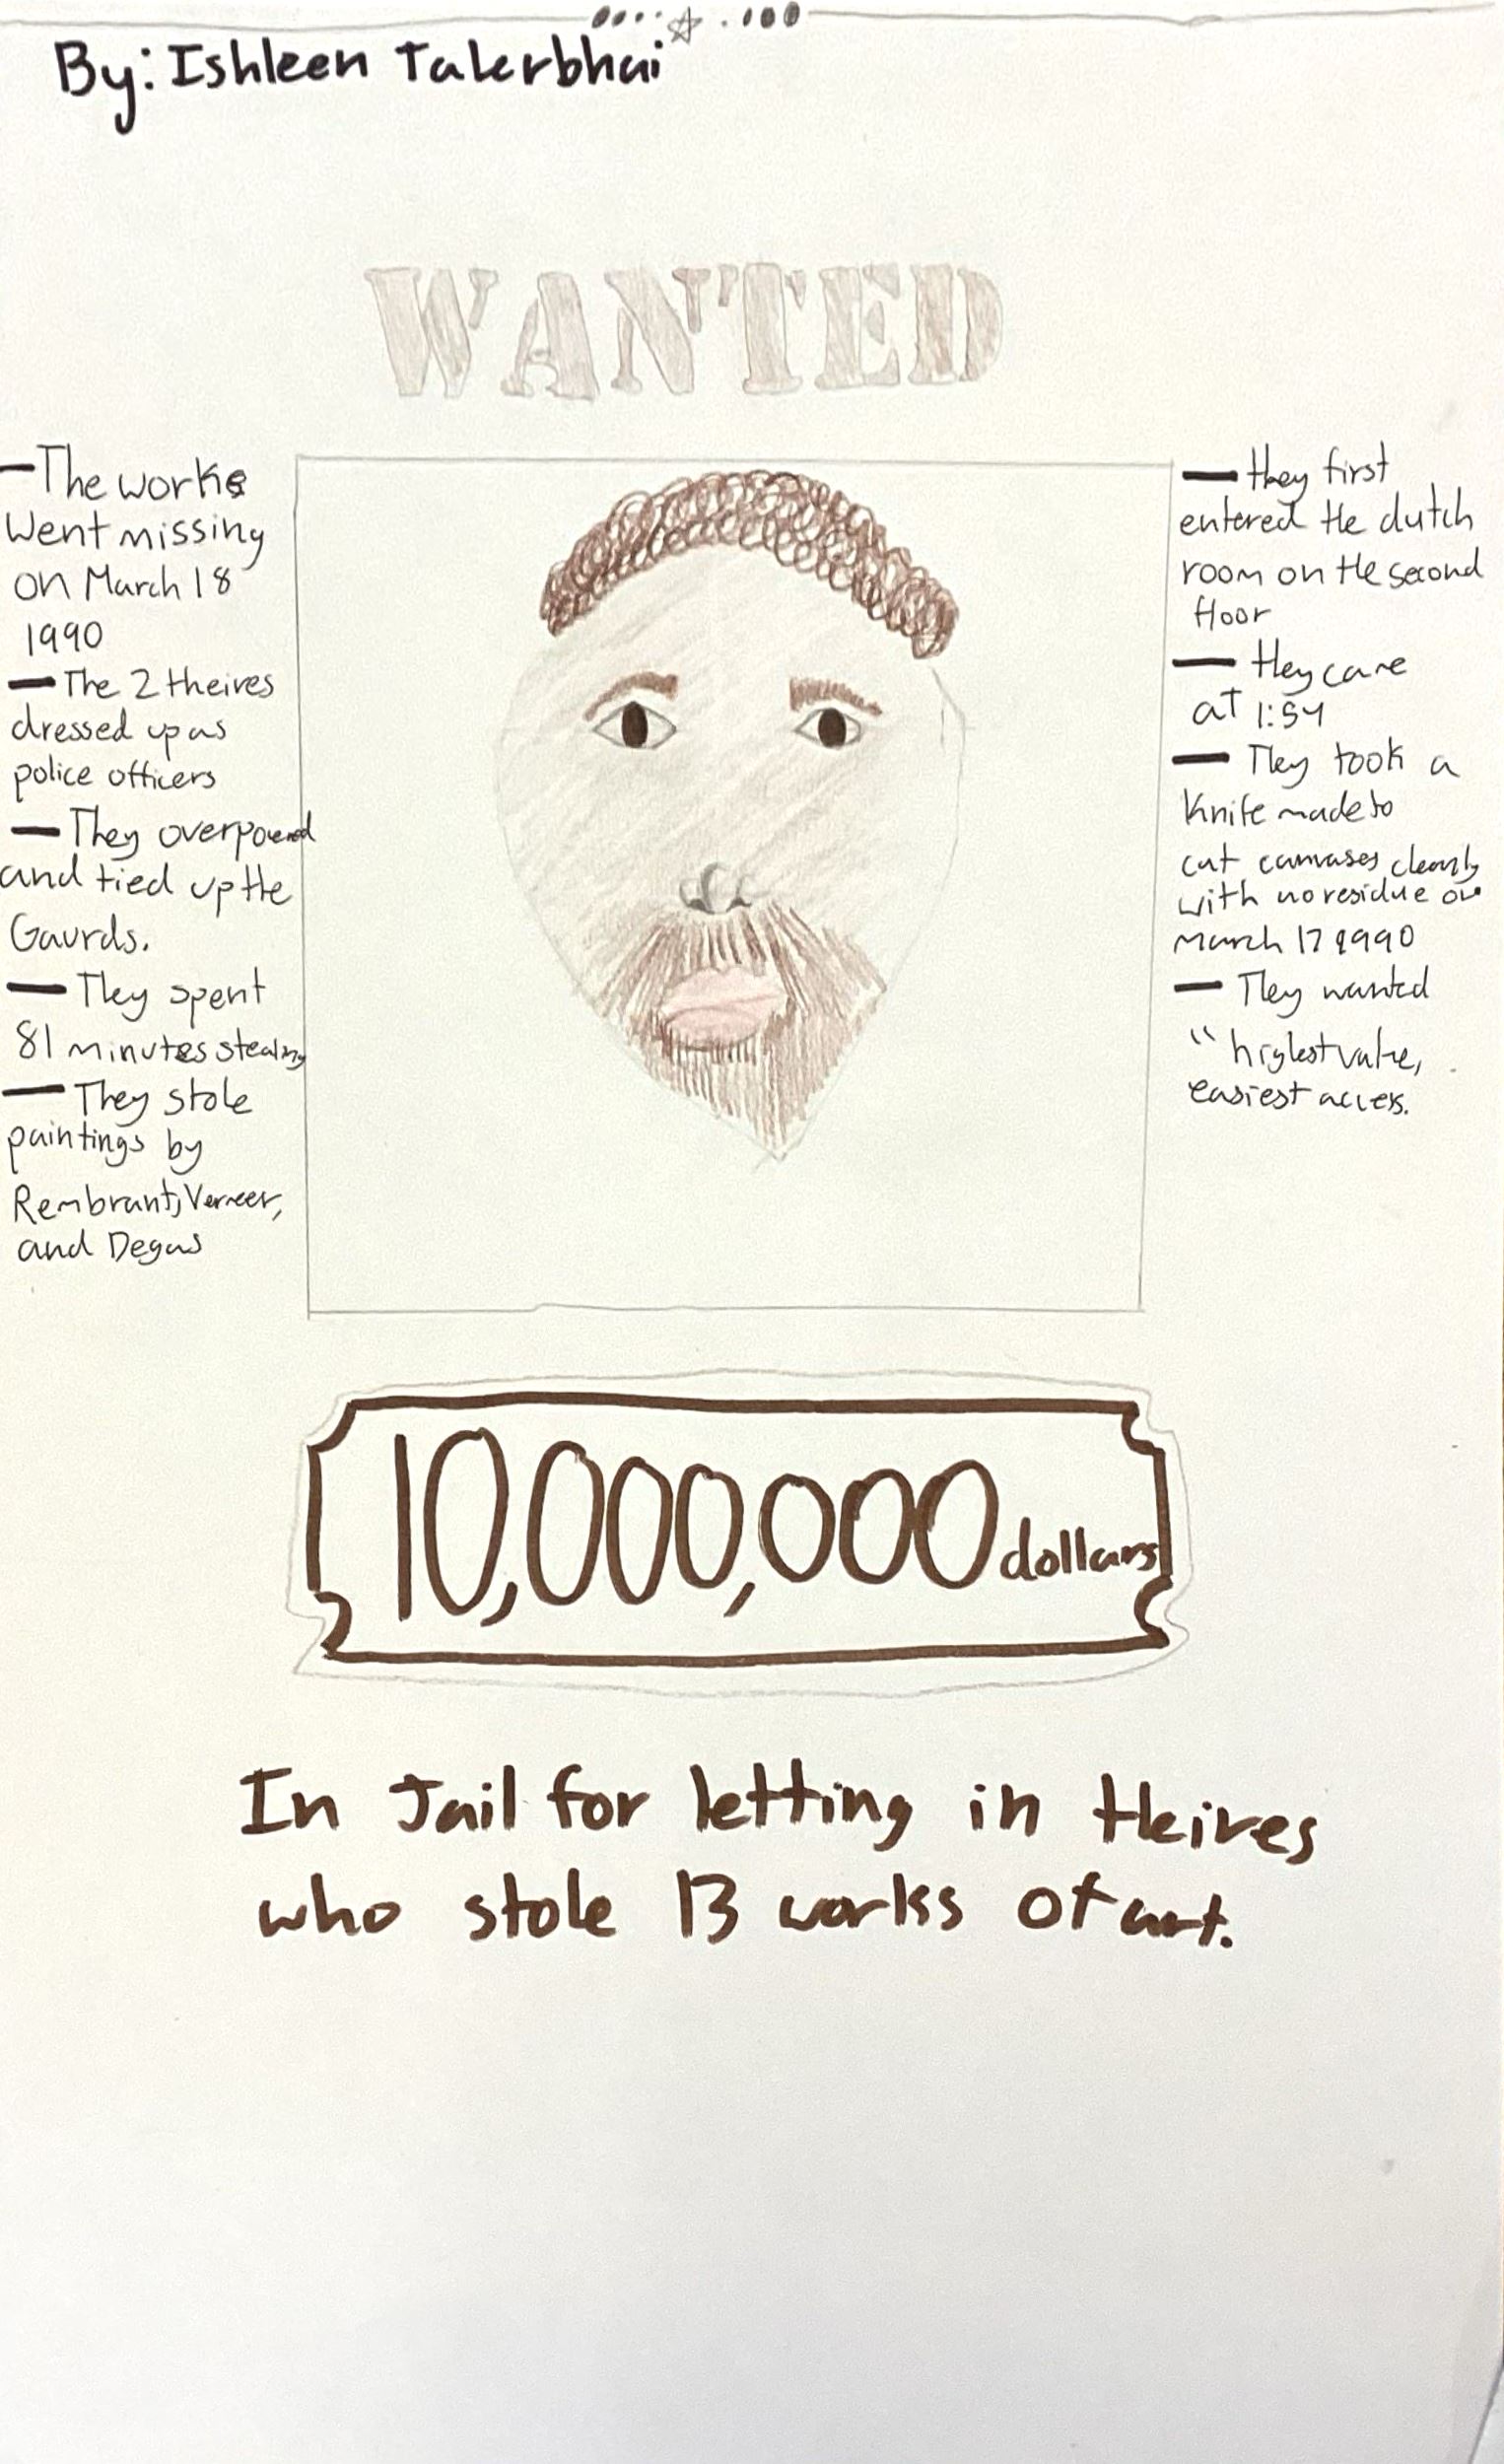 By: Ishleen Talerbhai
WANTED
—The works
Went missing
on March 18
1990
— The 2 theives
dressed up as
police officers
— They overpowered
and tied up the
Gaurds.
— They spent
81 minutes stealing
— They stole
paintings by
Rembrant, Vermeer,
and Degas
— they first
entered the dutch
room on the second
floor
— they came
at 1:54
— They took a
Knife made to
cut canvases cleanly
with no residue on
march 17 1990
— They wanted
"highest value,
easiest access.
10,000,000 dollars
In Jail for letting in theives
who stole 13 works of art.